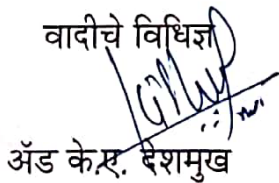 वादीचे विधिज्ञ
ॲड के.ए. देशमुख